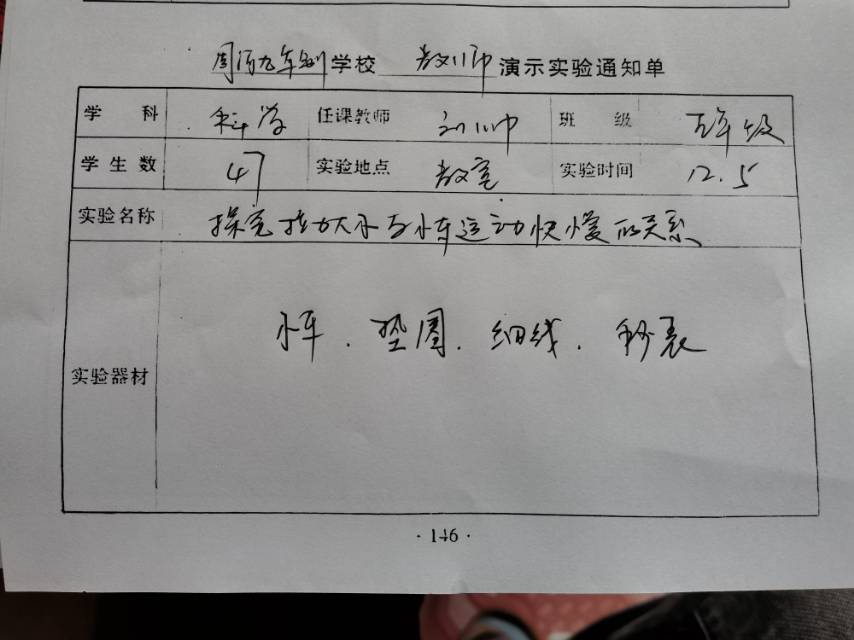 周河九年制学校 教师 演示实验通知单
学科 科学 任课教师 刘帅 班级 五年级
学生数 47 实验地点 教室 实验时间 12.5
实验名称 探究拉力大小与小车运动快慢的关系
小车.垫圈.细线.秒表
实验器材
·146·